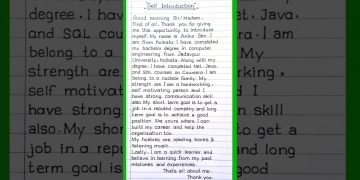 "Self Introduction"
Good morning Sir/Madam,
First of all, Thank you for giving
me this opportunity to introduce
myself. My name is Ankur Sen. I
am from Kolkata. I have completed
my bachelor degree in computer
engineering from Jadavpur
University, Kolkata. Along with my
degree, I have completed Net, Java,
and SQL courses on Coursera. I am
belong to a nuclear family. My
strength are I am a hardworking,
self motivating person and I
have strong communication skill
also. My short term goal is to get a
job in a reputed company and long
term goal is to achieve a good
position like yours where I can
build my career and help the
organisation too.
My hobbies are reading books &
listening music.
Lastly, I am a quick learner and
believe in learning from my past
mistakes and experiences.
That's all about me.
Thank you.